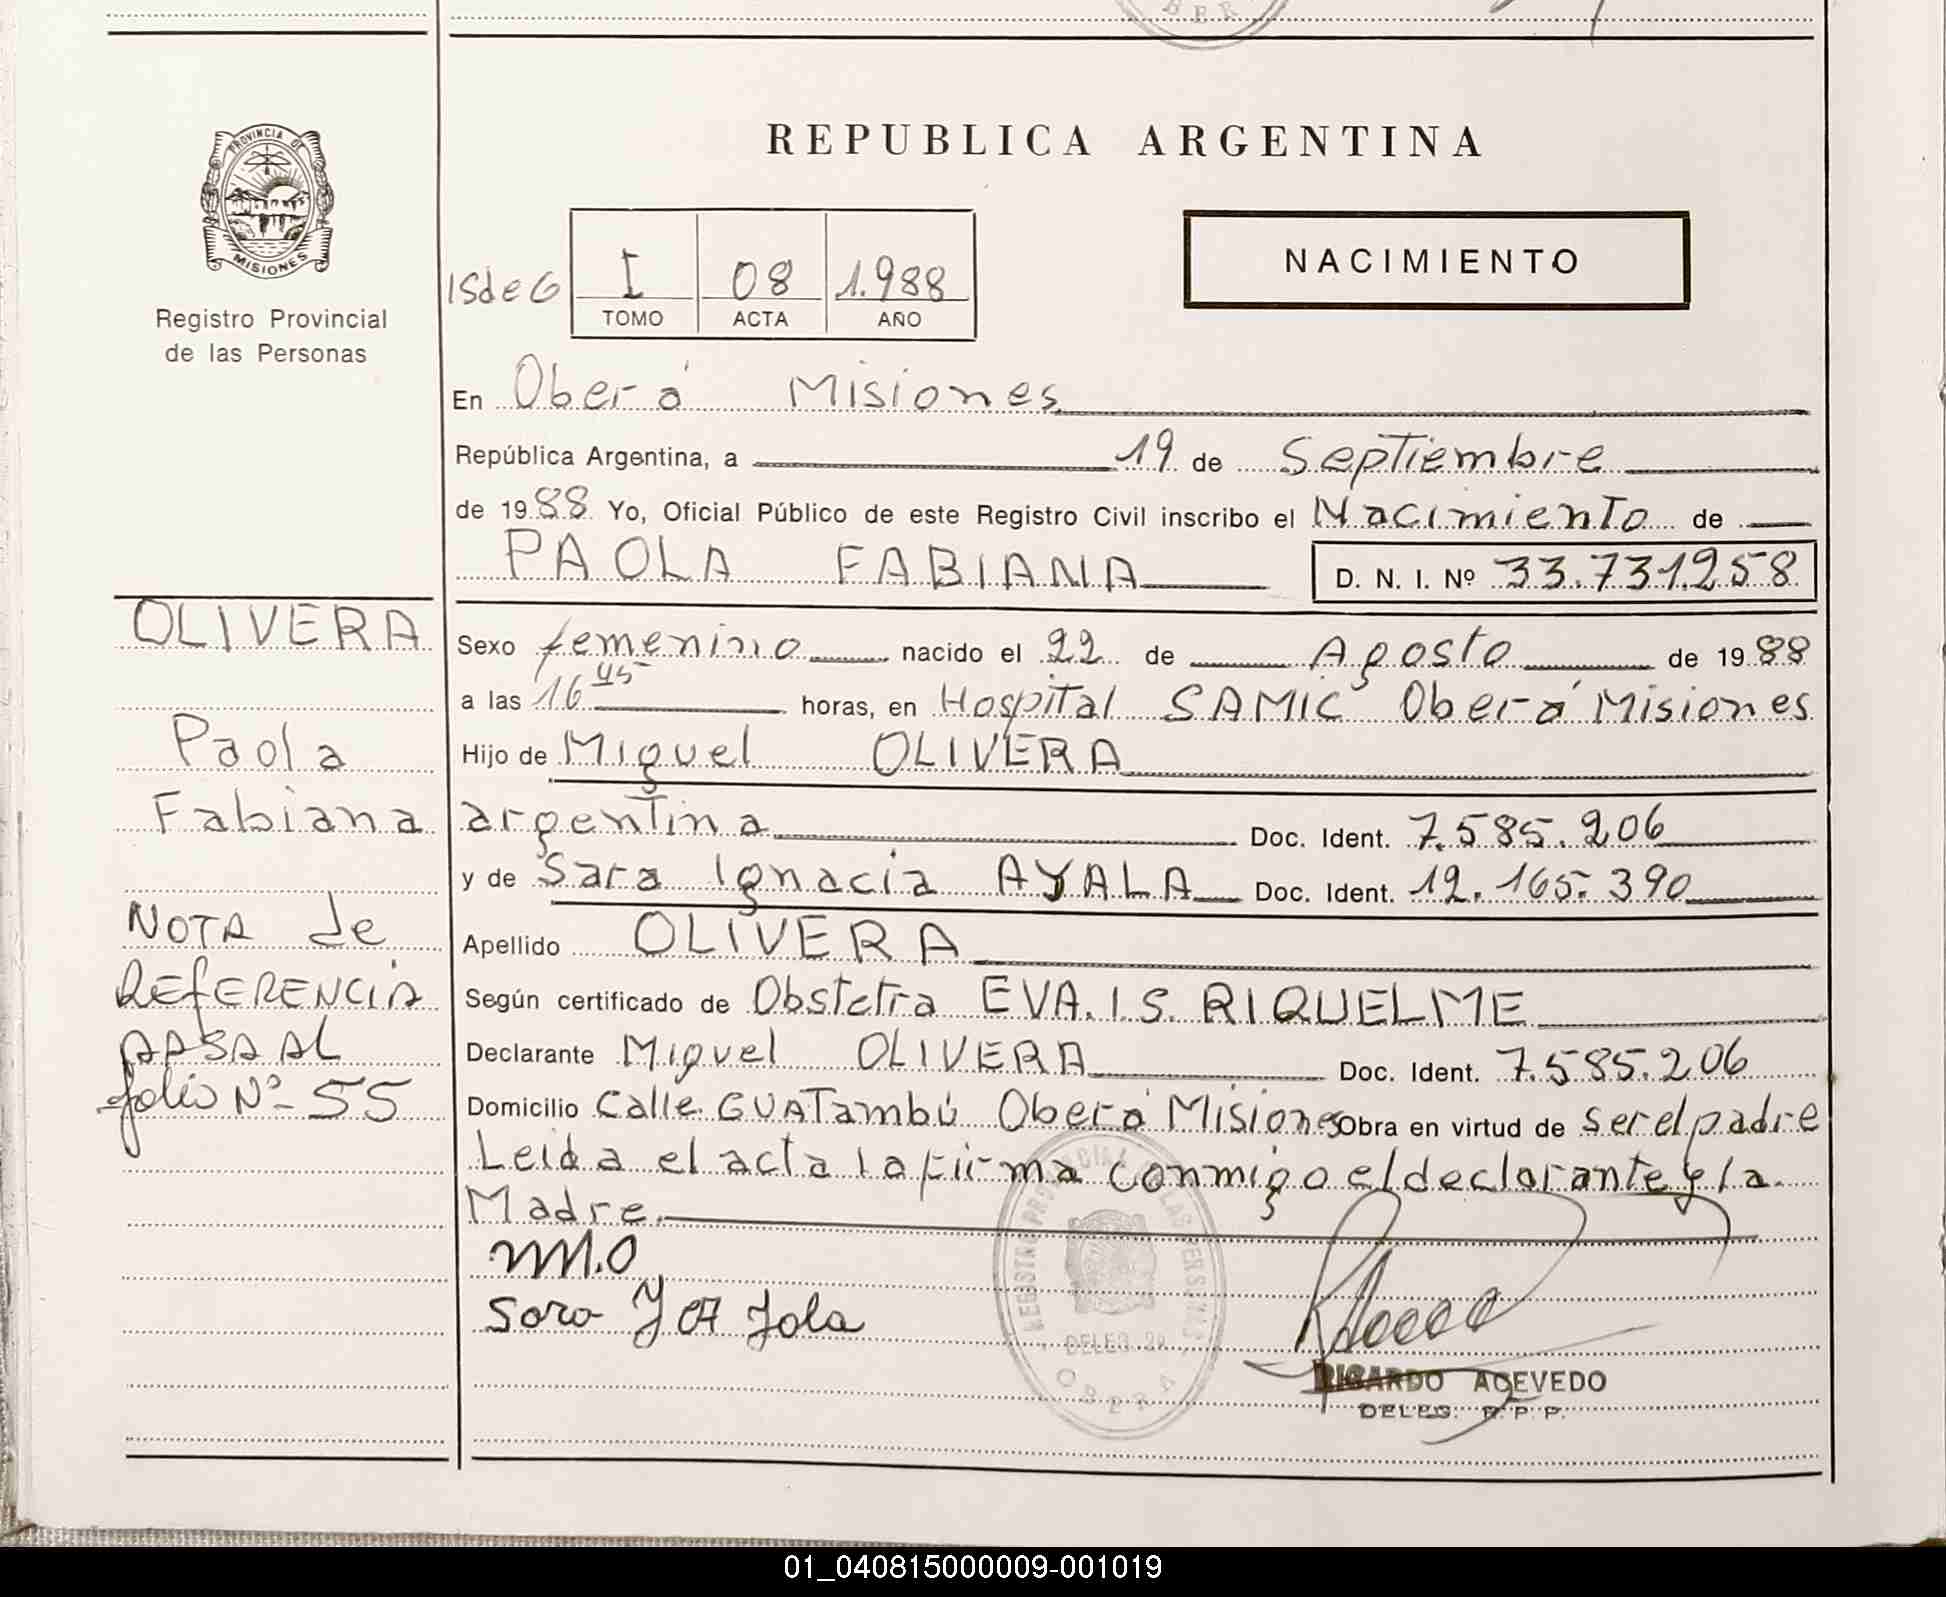 BER
PROVINCIA DE
MISIONES
Registro Provincial
de las Personas
REPUBLICA ARGENTINA
NACIMIENTO
ISdeG I 08 1.988
TOMO ACTA AÑO
En Oberá Misiones
República Argentina, a 19 de Septiembre
de 1988 Yo, Oficial Público de este Registro Civil inscribo el Nacimiento de
PAOLA FABIANA D. N. I. Nº 33.731.258
Sexo femenino nacido el 22 de Agosto de 1988
a las 16 45 horas, en Hospital SAMIC Oberá Misiones
Hijo de Miguel OLIVERA
argentina Doc. Ident. 7.585.206
y de Sara Ignacia AYALA Doc. Ident. 12.165.390
Apellido OLIVERA
Según certificado de Obstetra EVA.I.S. RIQUELME
Declarante Miguel OLIVERA Doc. Ident. 7.585.206
Domicilio Calle GUATambú Oberá Misiones Obra en virtud de ser el padre
Leida el acta la firma conmigo el declarante y la
Madre.
OLIVERA
Paola
Fabiana
NOTA de
REfERENCIA
PASA AL
folio Nº 55
MM.O
Sara Y A Jala
REGISTRO PROVINCIAL DE LAS PERSONAS
DELEG.
OBERA
RICARDO ACEVEDO
DELEG. R. P. P.
01_040815000009-001019